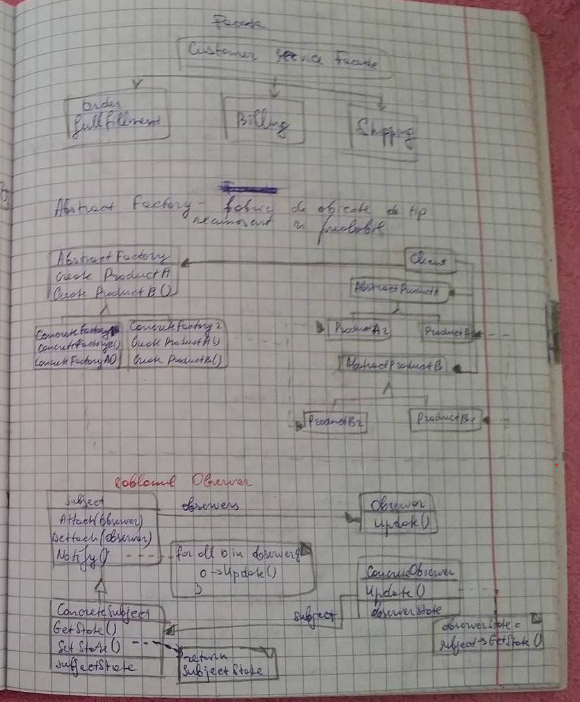 Facade
Customer Service Facade
Order
fullfillment
Billing
Shipping
Abstract Factory - fabrică de obiecte de tip
necunoscut în prealabil
AbstractFactory
Create ProductA
Create ProductB()
Client
AbstractProductA
ConcreteFactory1
ConcreteFactory2
Create ProductA()
Create ProductB()
ProductA2
ProductA1
AbstractProductB
ProductB2
ProductB1
Șablonul Observer
Subject
Attach(Observer)
Dettach(Observer)
Notify()
observers
Observer
Update()
for all o in observers {
o->Update()
}
ConcreteObserver
Update()
observerState
ConcreteSubject
GetState()
SetState()
subjectState
subject
return
SubjectState
observerState =
subject->GetState()